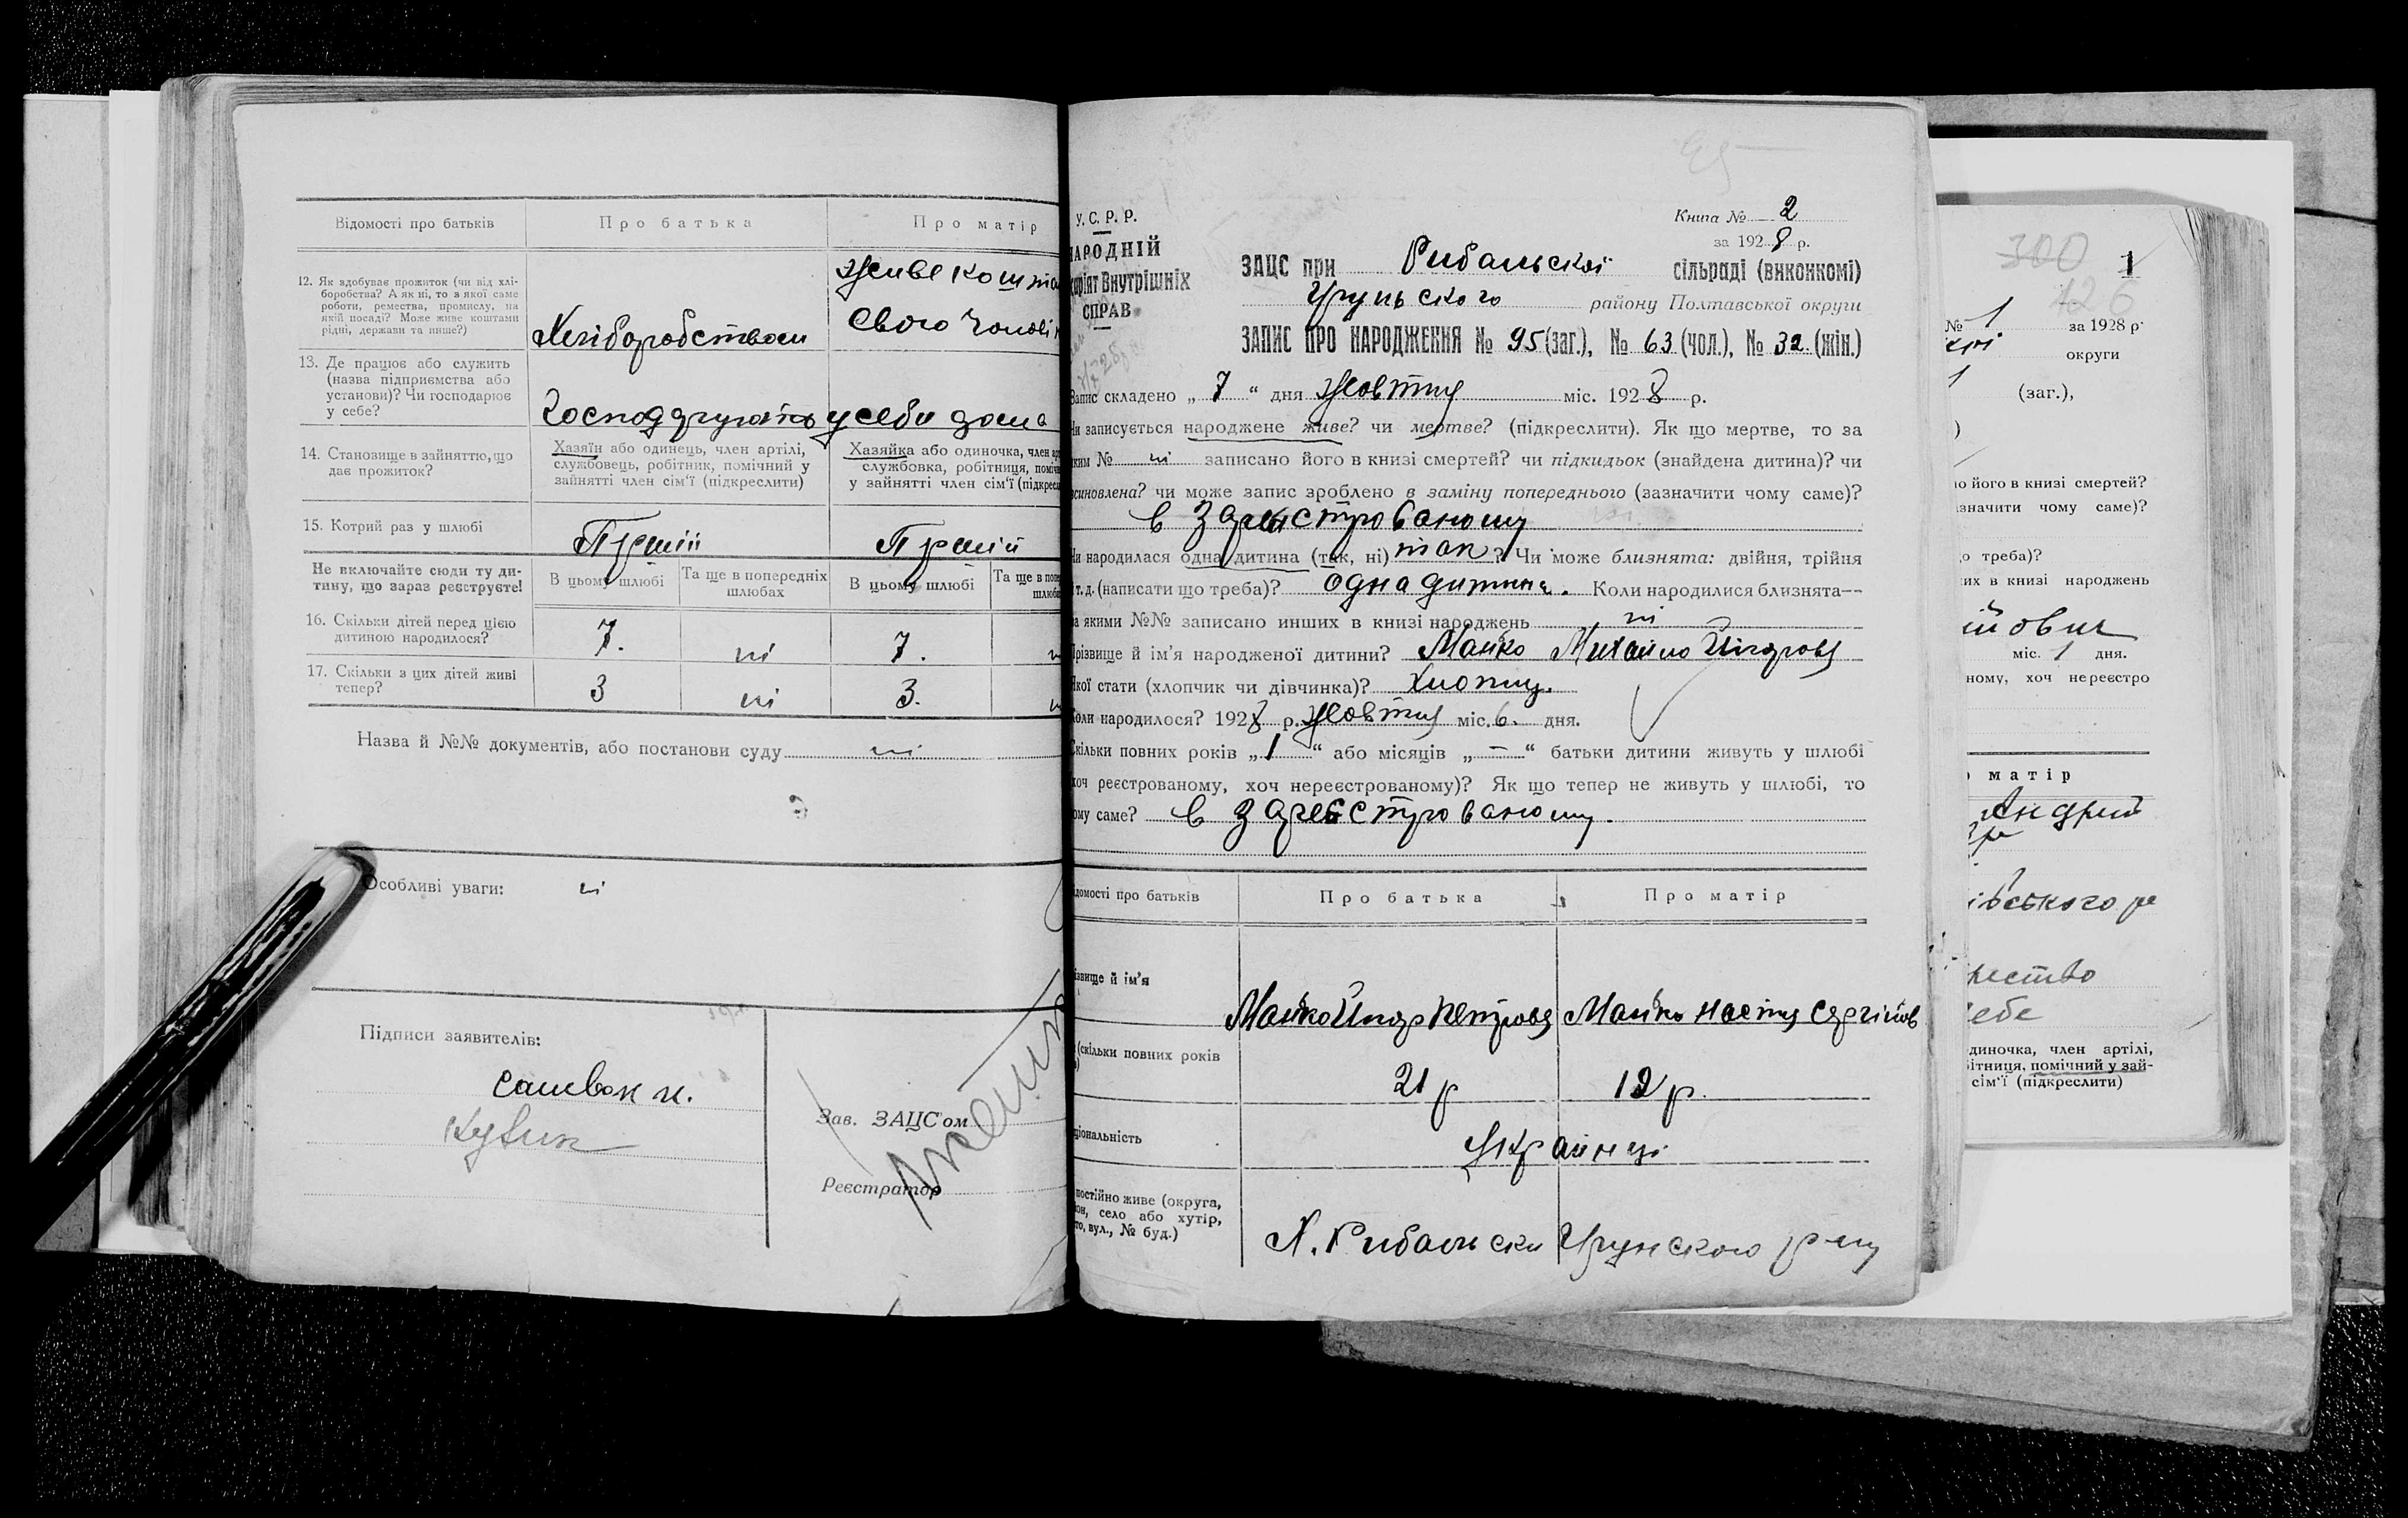 Відомості про батьків
Про батька
Про матір
12. Як здобуває прожиток (чи від хлі-
боробства? А як ні, то з якої саме
роботи, ремества, промислу, на
якій посаді? Може живе коштами
рідні, держави та инше?)
Хліборобством
живе кошта
свого чоловік
13. Де працює або служить
(назва підприємства або
установи)? Чи господарює
у себе?
Господарують у себи дома
14. Становище в зайняттю, що
дає прожиток?
Хазяїн або одинець, член артілі,
службовець, робітник, помічний у
зайнятті член сім'ї (підкреслити)
Хазяйка або одиночка, член арт
службовка, робітниця, поміч
у зайнятті член сім'ї (підкресл
15. Котрий раз у шлюбі
Перший
Перший
Не включайте сюди ту ди-
тину, що зараз реєструєте!
В цьому шлюбі
Та ще в попередніх
шлюбах
В цьому шлюбі
Та ще в попе
шлюба
16. Скільки дітей перед цією
дитиною народилося?
7.
ні
7.
17. Скільки з цих дітей живі
тепер?
3
ні
3.
Назва й №№ документів, або постанови суду ні
Особливі уваги: ні
Підписи заявителів:
Зав. ЗАЦС'ом
Реєстратор
У.С.Р.Р.
НАРОДНІЙ
аріят Внутрішніх
СПРАВ
Книга № 2
за 1928 р.
ЗАЦС при Рибальскої сільраді (виконкомі)
Груньского району Полтавської округи
ЗАПИС ПРО НАРОДЖЕННЯ № 95 (заг.), № 63 (чол.), № 32 (жін.)
Запис складено „ 7 “ дня жовтня міс. 1928 р.
Чи записується народжене живе? чи мертве? (підкреслити). Як що мертве, то за
яким № ні записано його в книзі смертей? чи підкидьок (знайдена дитина)? чи
всиновлена? чи може запис зроблено в заміну попереднього (зазначити чому саме)?
в зареєстрованому
Чи народилася одна дитина (так, ні) так? Чи може близнята: двійня, трійня
т. д. (написати що треба)? одна дитина. Коли народилися близнята—
за якими №№ записано инших в книзі народжень ні
Прізвище й ім'я народженої дитини? Майко Михайло
Якої стати (хлопчик чи дівчинка)? хлопчи.
Коли народилося? 1928 р. жовтня міс. 6. дня.
Скільки повних років „ 1 “ або місяців „ — “ батьки дитини живуть у шлюбі
хоч реєстрованому, хоч нереєстрованому)? Як що тепер не живуть у шлюбі, то
ому саме? в зареєстрованому.
ідомості про батьків
Про батька
Про матір
ізвище й ім'я
Майко Петров
Майко Настя Сергійов
(скільки повних років
21 р
ціональність
Українці
постійно живе (округа,
он, село або хутір,
то, вул., № буд.)
Х. Рибальски Грунского р-ну
300
1
126
№ 1 за 1928 р.
округи
1 (заг.),
)
о його в книзі смертей?
значити чому саме)?
о треба)?
их в книзі народжень
йович
міс. 1 дня.
ному, хоч нереєстро
матір
Андрій
івського ра
себе
диночка, член артілі,
ітниця, помічний у зай-
сім'ї (підкреслити)